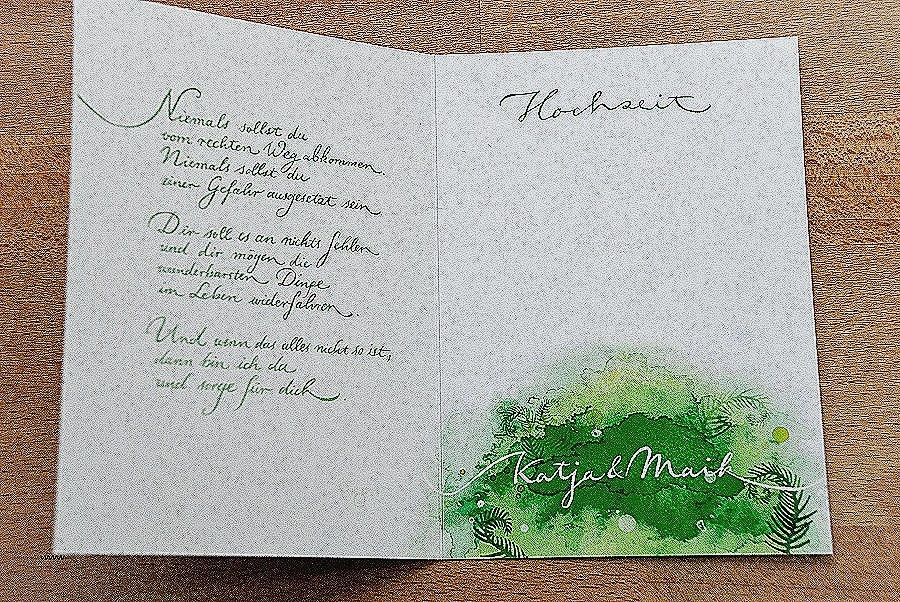 Niemals sollst du
vom rechten Weg abkommen.
Niemals sollst du
einer Gefahr ausgesetzt sein.
Dir soll es an nichts fehlen
und dir mögen die
wunderbarsten Dinge
im Leben widerfahren.
Und wenn das alles nicht so ist,
dann bin ich da
und sorge für dich.
Hochzeit
Katja & Maik